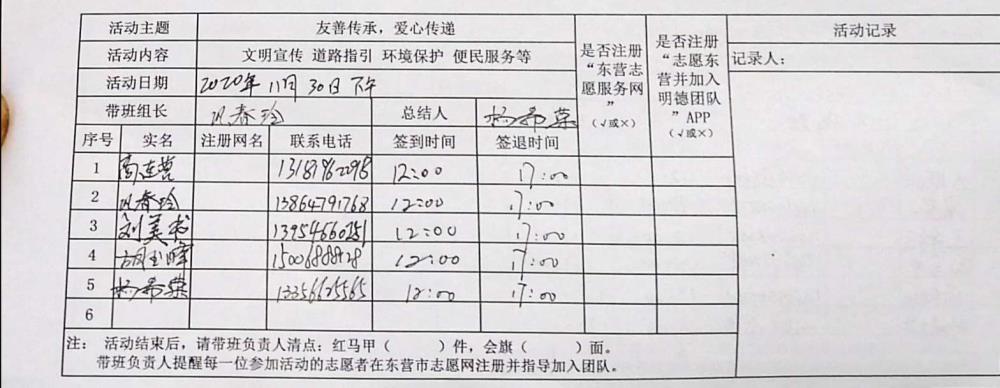 活动主题 友善传承，爱心传递 是否注册“东营志愿服务网”（√或×） 是否注册“志愿东营并加入明德团队”APP（√或×） 活动记录
活动内容 文明宣传 道路指引 环境保护 便民服务等 记录人：
活动日期 2020年 11月 30日 下午
带班组长 春玲 总结人 杨希荣
序号 实名 注册网名 联系电话 签到时间 签退时间
1 高连营 12:00 17:00
2 春玲 13864791768 12:00 17:00
3 刘美书 12:00 17:00
4 胡玉峰 12:00 17:00
5 杨希荣 13356625565 12:00 17:00
6
注： 活动结束后，请带班负责人清点：红马甲（ ）件，会旗（ ）面。
带班负责人提醒每一位参加活动的志愿者在东营市志愿网注册并指导加入团队。